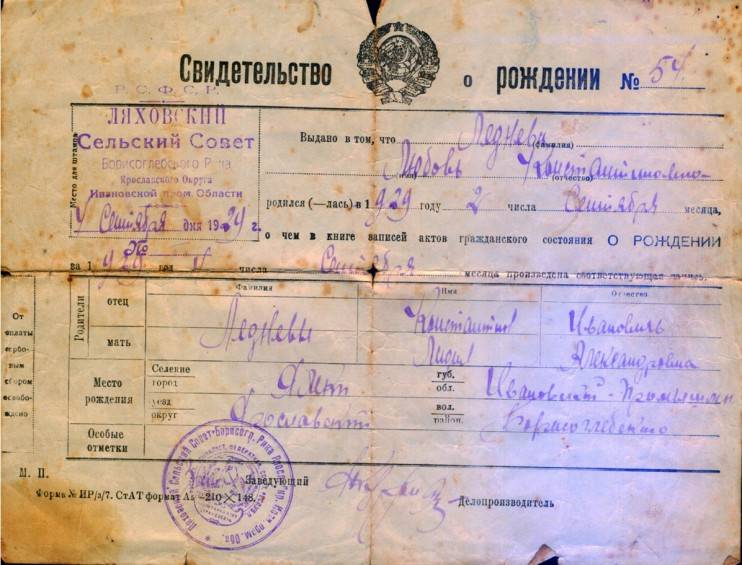 Свидетельство о рождении № 54
Р. С. Ф. С. Р.
ЛЯХОВСКИЙ
Сельский Совет
Борисоглебского Р-на
Ярославского Округа
Ивановской пром. Области
Место для штампа
4 Сентября дня 1929 г.
Выдано в том, что Леднева
(фамилия)
Любовь Константиновна
(имя) (отчество)
родился (—лась) в 1929 году 2 числа Сентября месяца,
о чем в книге записей актов гражданского состояния О РОЖДЕНИИ
за 19 год числа Сентября месяца произведена соответствующая запись.
От оплаты гербовым сбором освобождено
Родители
Фамилия Имя Отчество
отец Константин Иванович
Ледневы
мать Александровна
Место рождения
Селение город
губ. обл.
уезд округ Ярославский
вол. район.
Особые отметки
М. П.
Заведующий
Делопроизводитель
Форма № ИР/з/7. СтАТ формат А5 —210×148.